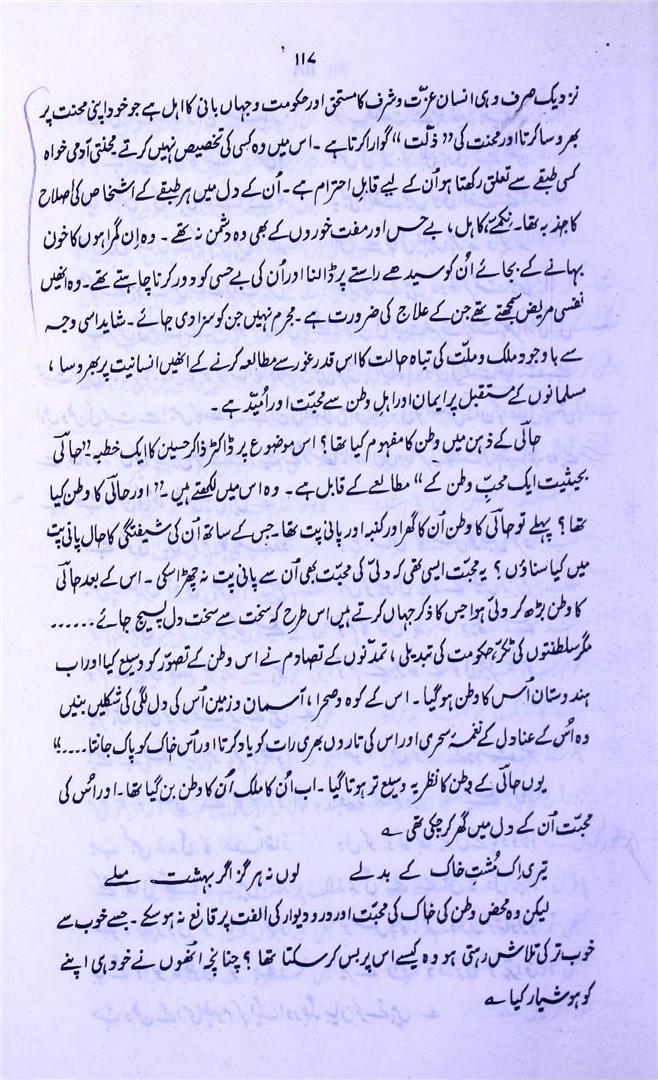 ۱۱۷
نزدیک صرف وہی انسان عزّت و شرف کا مستحق اور حکومت و جہاں بانی کا اہل ہے جو خود اپنی محنت پر
بھروسا کرتا اور محنت کی ”ذلّت“ گوارا کرتا ہے ۔ اس میں وہ کسی کی تخصیص نہیں کرتے یمحنتی آدمی خواہ
کسی طبقے سے تعلق رکھتا ہو اُن کے لیے قابلِ احترام ہے ۔ اُن کے دل میں ہر طبقے کے اشخاص کی اصلاح
کا جذبہ تھا۔ نکمّے، کاہل، بےحس اور مفت خوروں کے بھی وہ دشمن نہ تھے ۔ وہ اِن گمراہوں کا خون
بہانے کے بجائے اُن کو سیدھے راستے پر ڈالنا اور اُن کی بےحسی کو دور کرنا چاہتے تھے ۔ وہ انھیں
نفسی مریض سمجھتے تھے جن کے علاج کی ضرورت ہے ۔ مجرم نہیں جن کو سزا دی جائے ۔ شاید اسی وجہ
سے باوجود ملک و ملّت کی تباہ حالت کا اس قدر غور سے مطالعہ کرنے کے انھیں انسانیت پر بھروسا ،
مسلمانوں کے مستقبل پر ایمان اور اہلِ وطن سے محبّت اور اُمّید ہے ۔
حالؔی کے ذہن میں وطن کا مفہوم کیا تھا ؟ اس موضوع پر ڈاکٹر ذاکر حسین کا ایک خطبہ ”حالؔی
بحیثیت ایک محبِّ وطن کے“ مطالعے کے قابل ہے ۔ وہ اس میں لکھتے ہیں ۔ ” اور حالی کا وطن کیا
تھا ؟ پہلے تو حالؔی کا وطن اُن کا گھر اور کنبہ اور پانی پت تھا۔ جس کے ساتھ اُن کی شیفتگی کا حال پانی پت
میں کیا سناؤں ؟ یہ محبّت ایسی تھی کہ دلّی کی محبّت بھی اُن سے پانی پت نہ چھڑا سکی ۔ اس کے بعد حالؔی
کا وطن بڑھ کر دلّی ہوا جس کا ذکر جہاں کرتے ہیں اس طرح کہ سخت سے سخت دل پسیج جائے ......
مگر سلطنتوں کی ٹکر، حکومت کی تبدیلی، تمدّنوں کے تصادم نے اس وطن کے تصوّر کو وسیع کیا اور اب
ہندوستان اُس کا وطن ہو گیا ۔ اس کے کوہ و صحرا، آسمان و زمین اُس کی دل لگی کی شکلیں بنیں
وہ اُس کے عنادل کے نغمۂ سحری اور اس کی تاروں بھری رات کو یاد کرتا اور اُس خاک کو پاک جانتا ....“
یوں حالی کے وطن کا نظریہ وسیع تر ہوتا گیا ۔ اب اُن کا ملک اُن کا وطن بن گیا تھا ۔ اور اُس کی
محبّت اُن کے دل میں گھر کر چکی تھی ؎
تیری اِک مُشت خاک کے بدلے لوں نہ ہرگز اگر بہشت ملے
لیکن وہ محض وطن کی خاک کی محبّت اور در و دیوار کی الفت پر قانع نہ ہو سکے ۔ جسے خوب سے
خوب تر کی تلاش رہتی ہو وہ کیسے اس پر بس کر سکتا تھا ؟ چنانچہ انھوں نے خود ہی اپنے
کو ہوشیار کیا ؎